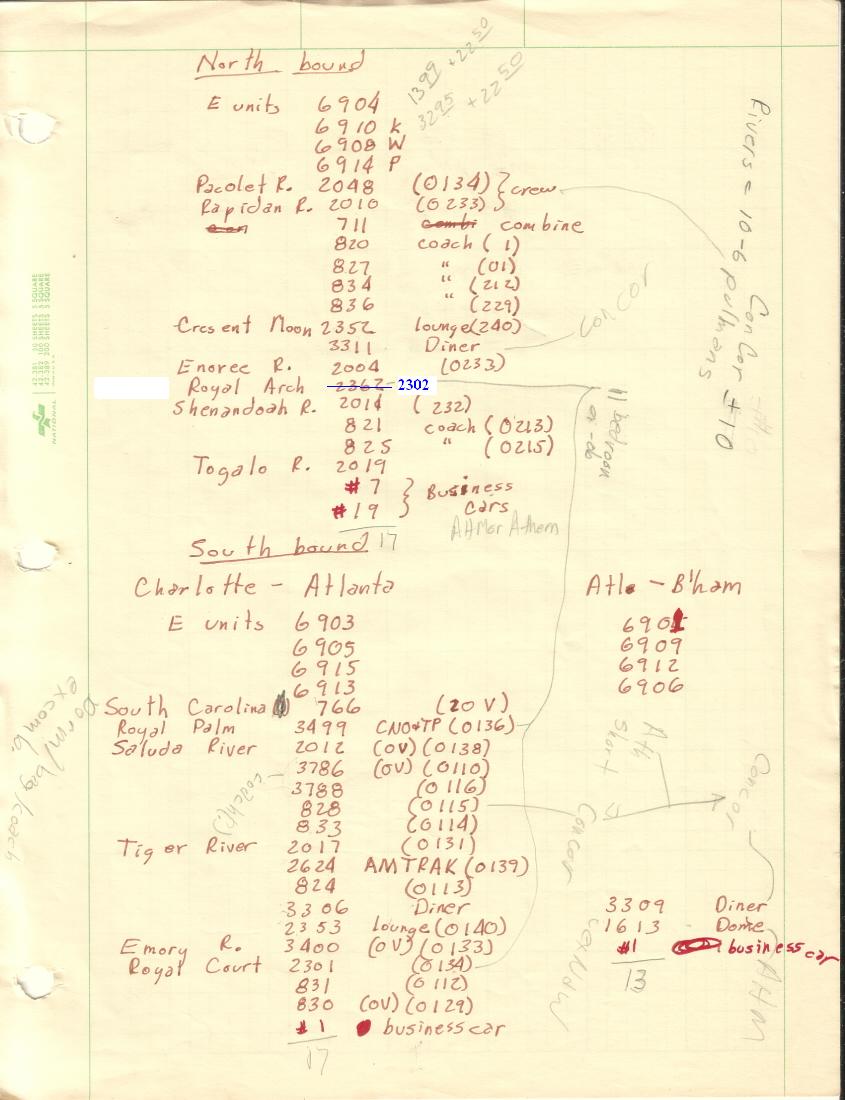 North bound
1399 + 22 50
3295 + 22 50
E units 6904
6910 K
6908 W
6914 P
Pacolet R. 2048 (0134) } crew
Rapidan R. 2010 (0233)
711 combi combine
820 coach ( 1)
827 " (01)
834 " (212)
836 " (229)
Crcsent Moon 2352 lounge (240)
3311 Diner
Con Cor
Enoree R. 2004 (0233)
Royal Arch 2362 2302
Shenandoah R. 2014 ( 232)
821 coach (0213)
825 " (0215)
Togalo R. 2019
#7 } Business
#19 Cars
17
Rivers = 10-6 pullmans
Con Cor #10
11 bedroom
South bound
Charlotte - Atlanta
E units 6903
6905
6915
6913
South Carolina 766 (20 V)
Royal Palm 3499 CNO&TP (0136)
Saluda River 2012 (OV) (0138)
3786 (OV) (0110)
3788 (0116)
828 (0115)
833 (0114)
Tiger River 2017 (0131)
2624 AMTRAK (0139)
824 (0113)
3306 Diner
2353 lounge (0140)
Emory R. 3400 (OV) (0133)
Royal Court 2301 (0134)
831 (0112)
830 (OV) (0129)
#1 business car
17
Dorm/bag/coach
ex comb.
coach(?)
Atl. - B'ham
6901
6909
6912
6906
Ath
Short
Concor
Concor
3309 Diner
1613 Dome
#1 business car
13
AHM
42-381 50 SHEETS 5 SQUARE
42-382 100 SHEETS 5 SQUARE
42-389 200 SHEETS 5 SQUARE
NATIONAL